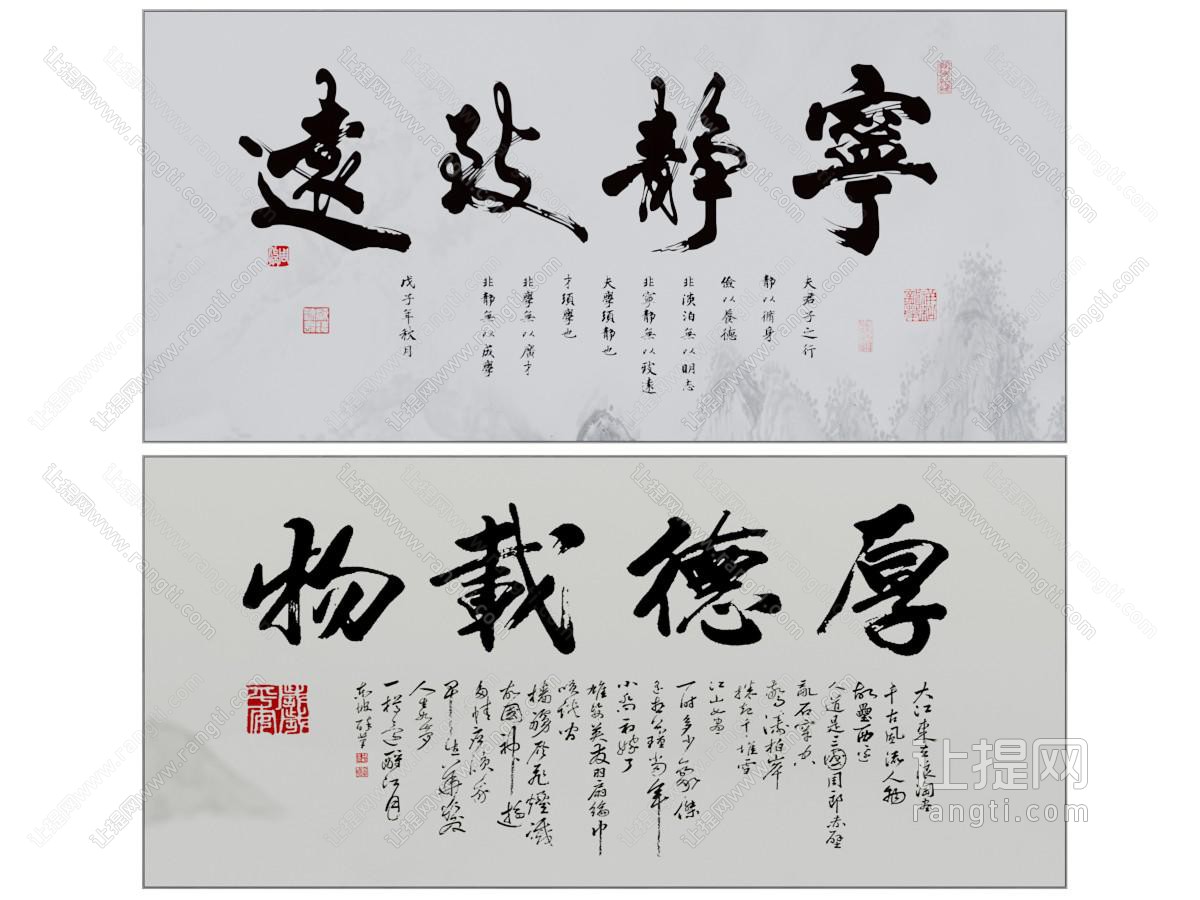 寧靜致遠
夫君子之行
靜以脩身
儉以養德
非淡泊無以明志
非寧靜無以致遠
夫學須靜也
才須學也
非學無以廣才
非靜無以成學
戊子年秋月
厚德載物
大江東去浪淘盡
千古風流人物
故壘西邊
人道是三國周郎赤壁
亂石穿空
驚濤拍岸
捲起千堆雪
江山如畫
一時多少豪傑
遙想公瑾當年
小喬初嫁了
雄姿英發羽扇綸巾
檣櫓灰飛煙滅
故國神遊
多情應笑我
早生華髮
人生如夢
一樽還酹江月
让提网
rangti.com
让提网www.rangti.com